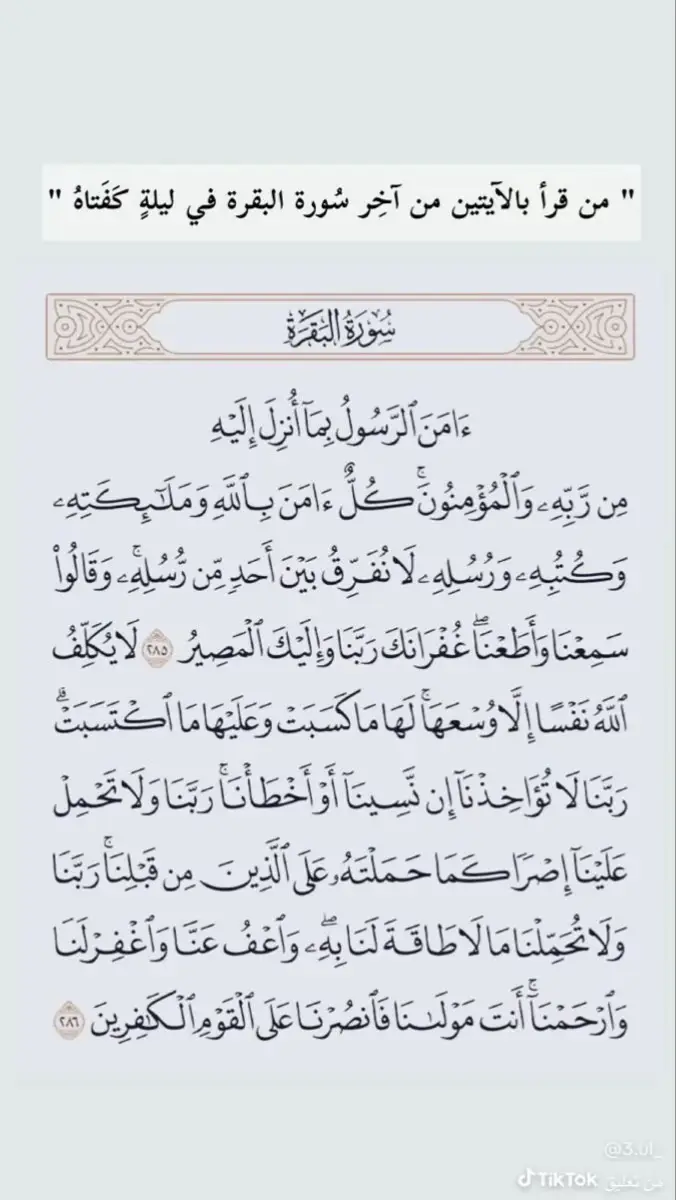 " من قرأ بالآيتين من آخِر سُورة البقرة في ليلةٍ كَفَتاهُ "
سُورَةُ البَقَرَةِ
ءَامَنَ ٱلرَّسُولُ بِمَآ أُنزِلَ إِلَيۡهِ
مِن رَّبِّهِۦ وَٱلۡمُؤۡمِنُونَۚ كُلٌّ ءَامَنَ بِٱللَّهِ وَمَلَٰٓئِكَتِهِۦ
وَكُتُبِهِۦ وَرُسُلِهِۦ لَا نُفَرِّقُ بَيۡنَ أَحَدٖ مِّن رُّسُلِهِۦۚ وَقَالُواْ
سَمِعۡنَا وَأَطَعۡنَاۖ غُفۡرَانَكَ رَبَّنَا وَإِلَيۡكَ ٱلۡمَصِيرُ ٢٨٥ لَا يُكَلِّفُ
ٱللَّهُ نَفۡسًا إِلَّا وُسۡعَهَاۚ لَهَا مَا كَسَبَتۡ وَعَلَيۡهَا مَا ٱكۡتَسَبَتۡۗ
رَبَّنَا لَا تُؤَاخِذۡنَآ إِن نَّسِينَآ أَوۡ أَخۡطَأۡنَاۚ رَبَّنَا وَلَا تَحۡمِلۡ
عَلَيۡنَآ إِصۡرٗا كَمَا حَمَلۡتَهُۥ عَلَى ٱلَّذِينَ مِن قَبۡلِنَاۚ رَبَّنَا
وَلَا تُحَمِّلۡنَا مَا لَا طَاقَةَ لَنَا بِهِۦۖ وَٱعۡفُ عَنَّا وَٱغۡفِرۡ لَنَا
وَٱرۡحَمۡنَآۚ أَنتَ مَوۡلَىٰنَا فَٱنصُرۡنَا عَلَى ٱلۡقَوۡمِ ٱلۡكَٰفِرِينَ ٢٨٦
@3.ul_
TikTok من تعليق